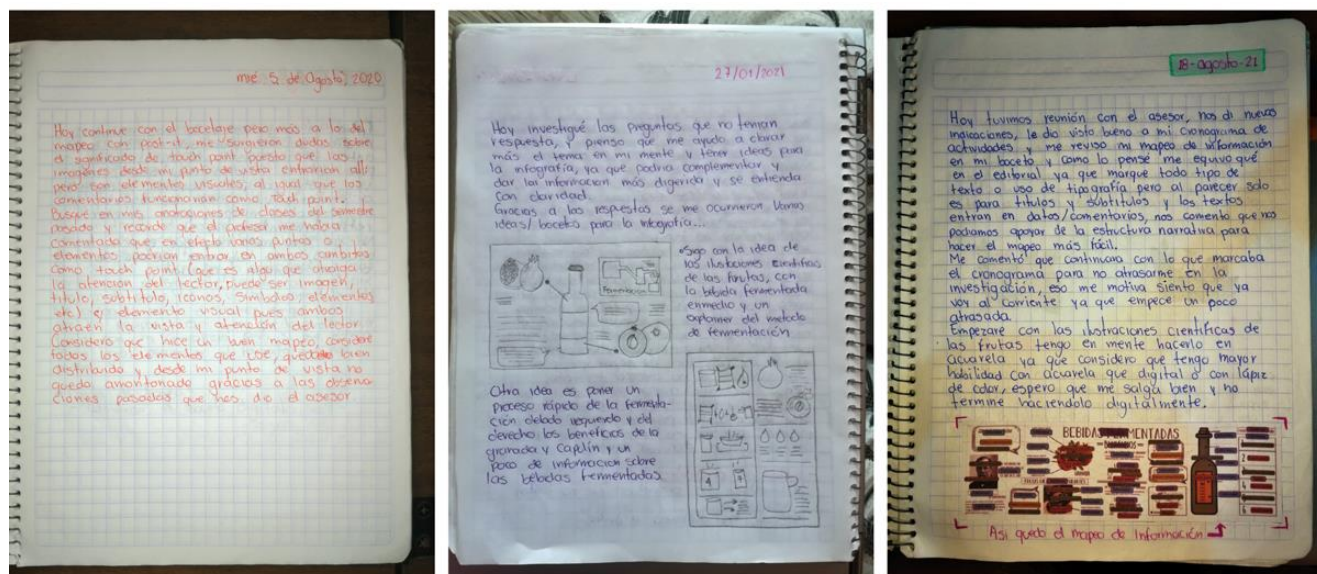 mié 5 de Agosto, 2020
Hoy continue con el bocetaje pero más a lo del
mapeo con post-it, me surgieron dudas sobre
el significado de touch point puesto que las
imágenes desde mi punto de vista entrarian allí
pero son elementos visuales, al igual que los
comentarios funcionarian como touch point.
Busqué en mis anotaciones de clases del semestre
pasado y recordé que el profesor me había
comentado que en efecto varios puntos o
elementos podrían entrar en ambos ambitos
como touch point (que es algo que atraiga
la atención del lector, puede ser imagen,
titulo, subtitulo, iconos, simbolos, elementos
etc) y elemento visual pues ambos
atraen la vista y atención del lector.
Considero que hice un buen mapeo, considere
todos los elementos que use, quedaron bien
distribuido y desde mi punto de vista no
quedo amontonado gracias a las observa
ciones pasadas que nos dio el asesor
27/01/2021
Hoy investigué las preguntas que no tenian
respuesta, y pienso que me ayudo a abrir
más el tema en mi mente y tener ideas para
la infografía, ya que podria complementar y
dar las informacion más digerida y se entienda
con claridad.
Gracias a las respuestas se me ocurrieron varias
ideas/ bocetos para la infografia...
Fermentación
•Sigo con la idea de
las ilustraciones cientificas
de las frutas, con
la bebida fermentada
enmedio y un
explainer del metodo
de fermentación
Otra idea es poner un
proceso rápido de la fermenta-
ción delado izquierdo y del
derecho los beneficios de la
granada y Capulin y un
poco de informacion sobre
las bebidas fermentadas.
18-agosto-21
Hoy tuvimos reunión con el asesor, nos di nuevas
indicaciones, le dio visto bueno a mi cronograma de
actividades y me reviso mi mapeo de información
en mi boceto y como lo pensé me equivoqué
en el editorial ya que marque todo tipo de
texto o uso de tipografía pero al parecer solo
es para titulos y subtitulos y los textos
entran en datos/comentarios, nos comento que nos
podiamos apoyar de la estructura narrativa para
hacer el mapeo más fácil.
Me comentó que continuara con lo que marcaba
el cronograma para no atrasarme en la
investigación, eso me motiva siento que ya
voy al corriente ya que empecé un poco
atrasada.
Empezare con las ilustraciones científicas de
las frutas tengo en mente hacerlo en
acuarela ya que considero que tengo mayor
habilidad con acuarela que digital o con lápiz
de color, espero que me salga bien y no
termine haciendolo digitalmente.
BEBIDAS FERMENTADAS
Así quedo el mapeo de Información